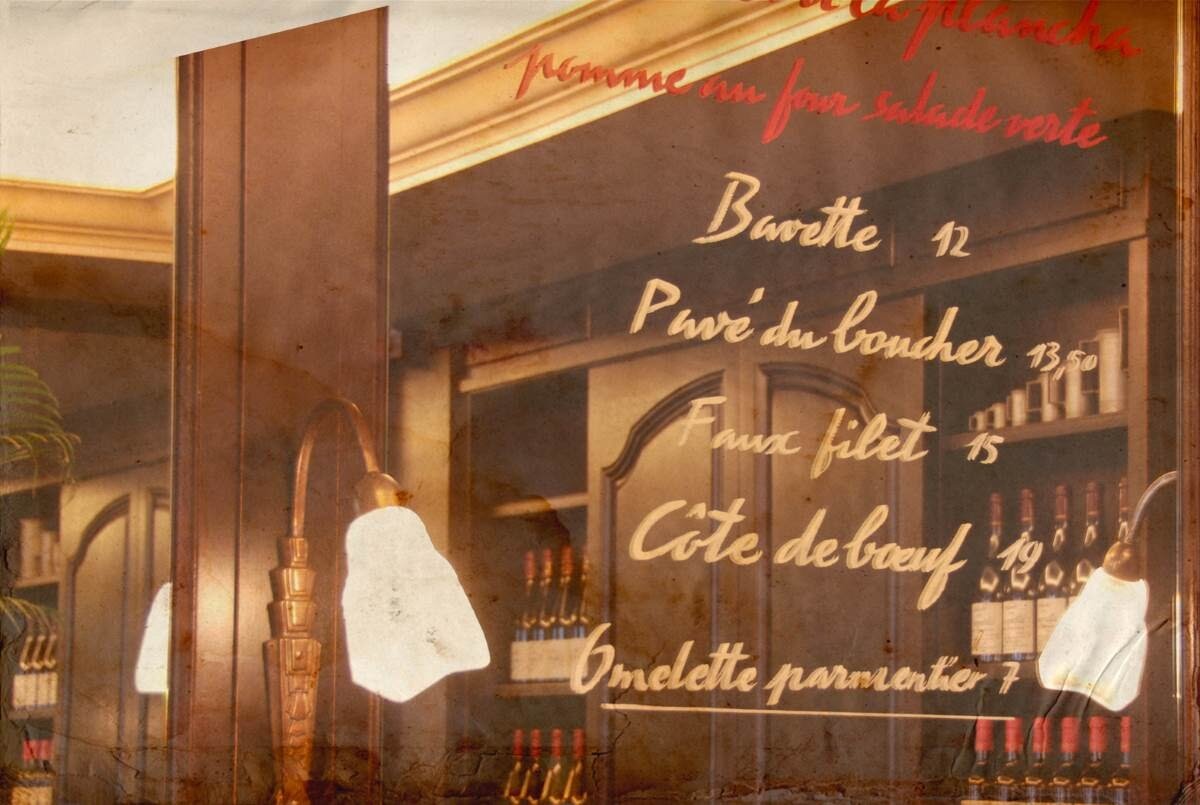 à la plancha
pomme au four salade verte
Bavette 12
Pavé du boucher 13,50
Faux filet 15
Côte de bœuf 19
Omelette parmentier 7